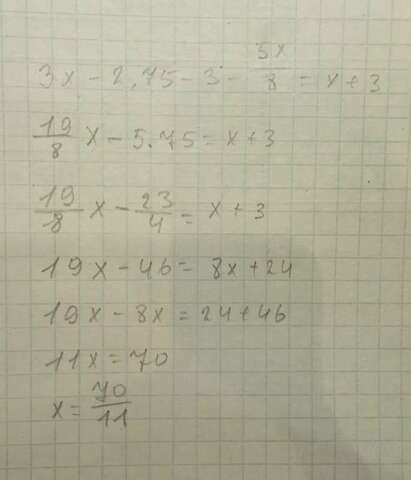 3x - 2,75 - 3 - 5x/8 = x + 3
19/8 x - 5.75 = x + 3
19/8 x - 23/4 = x + 3
19x - 46 = 8x + 24
19x - 8x = 24 + 46
11x = 70
x = 70/11